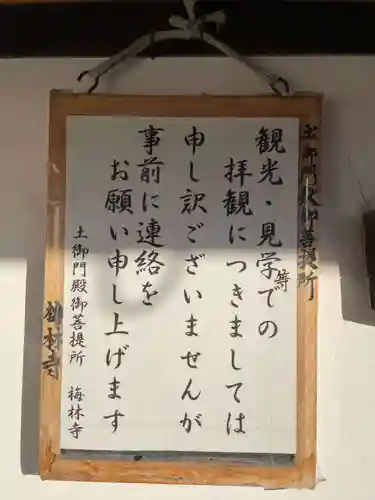 土御門殿御菩提所
観光・見学等での
拝観につきましては
申し訳ございませんが
事前に連絡を
お願い申し上げます
土御門殿御菩提所　梅林寺
梅林寺